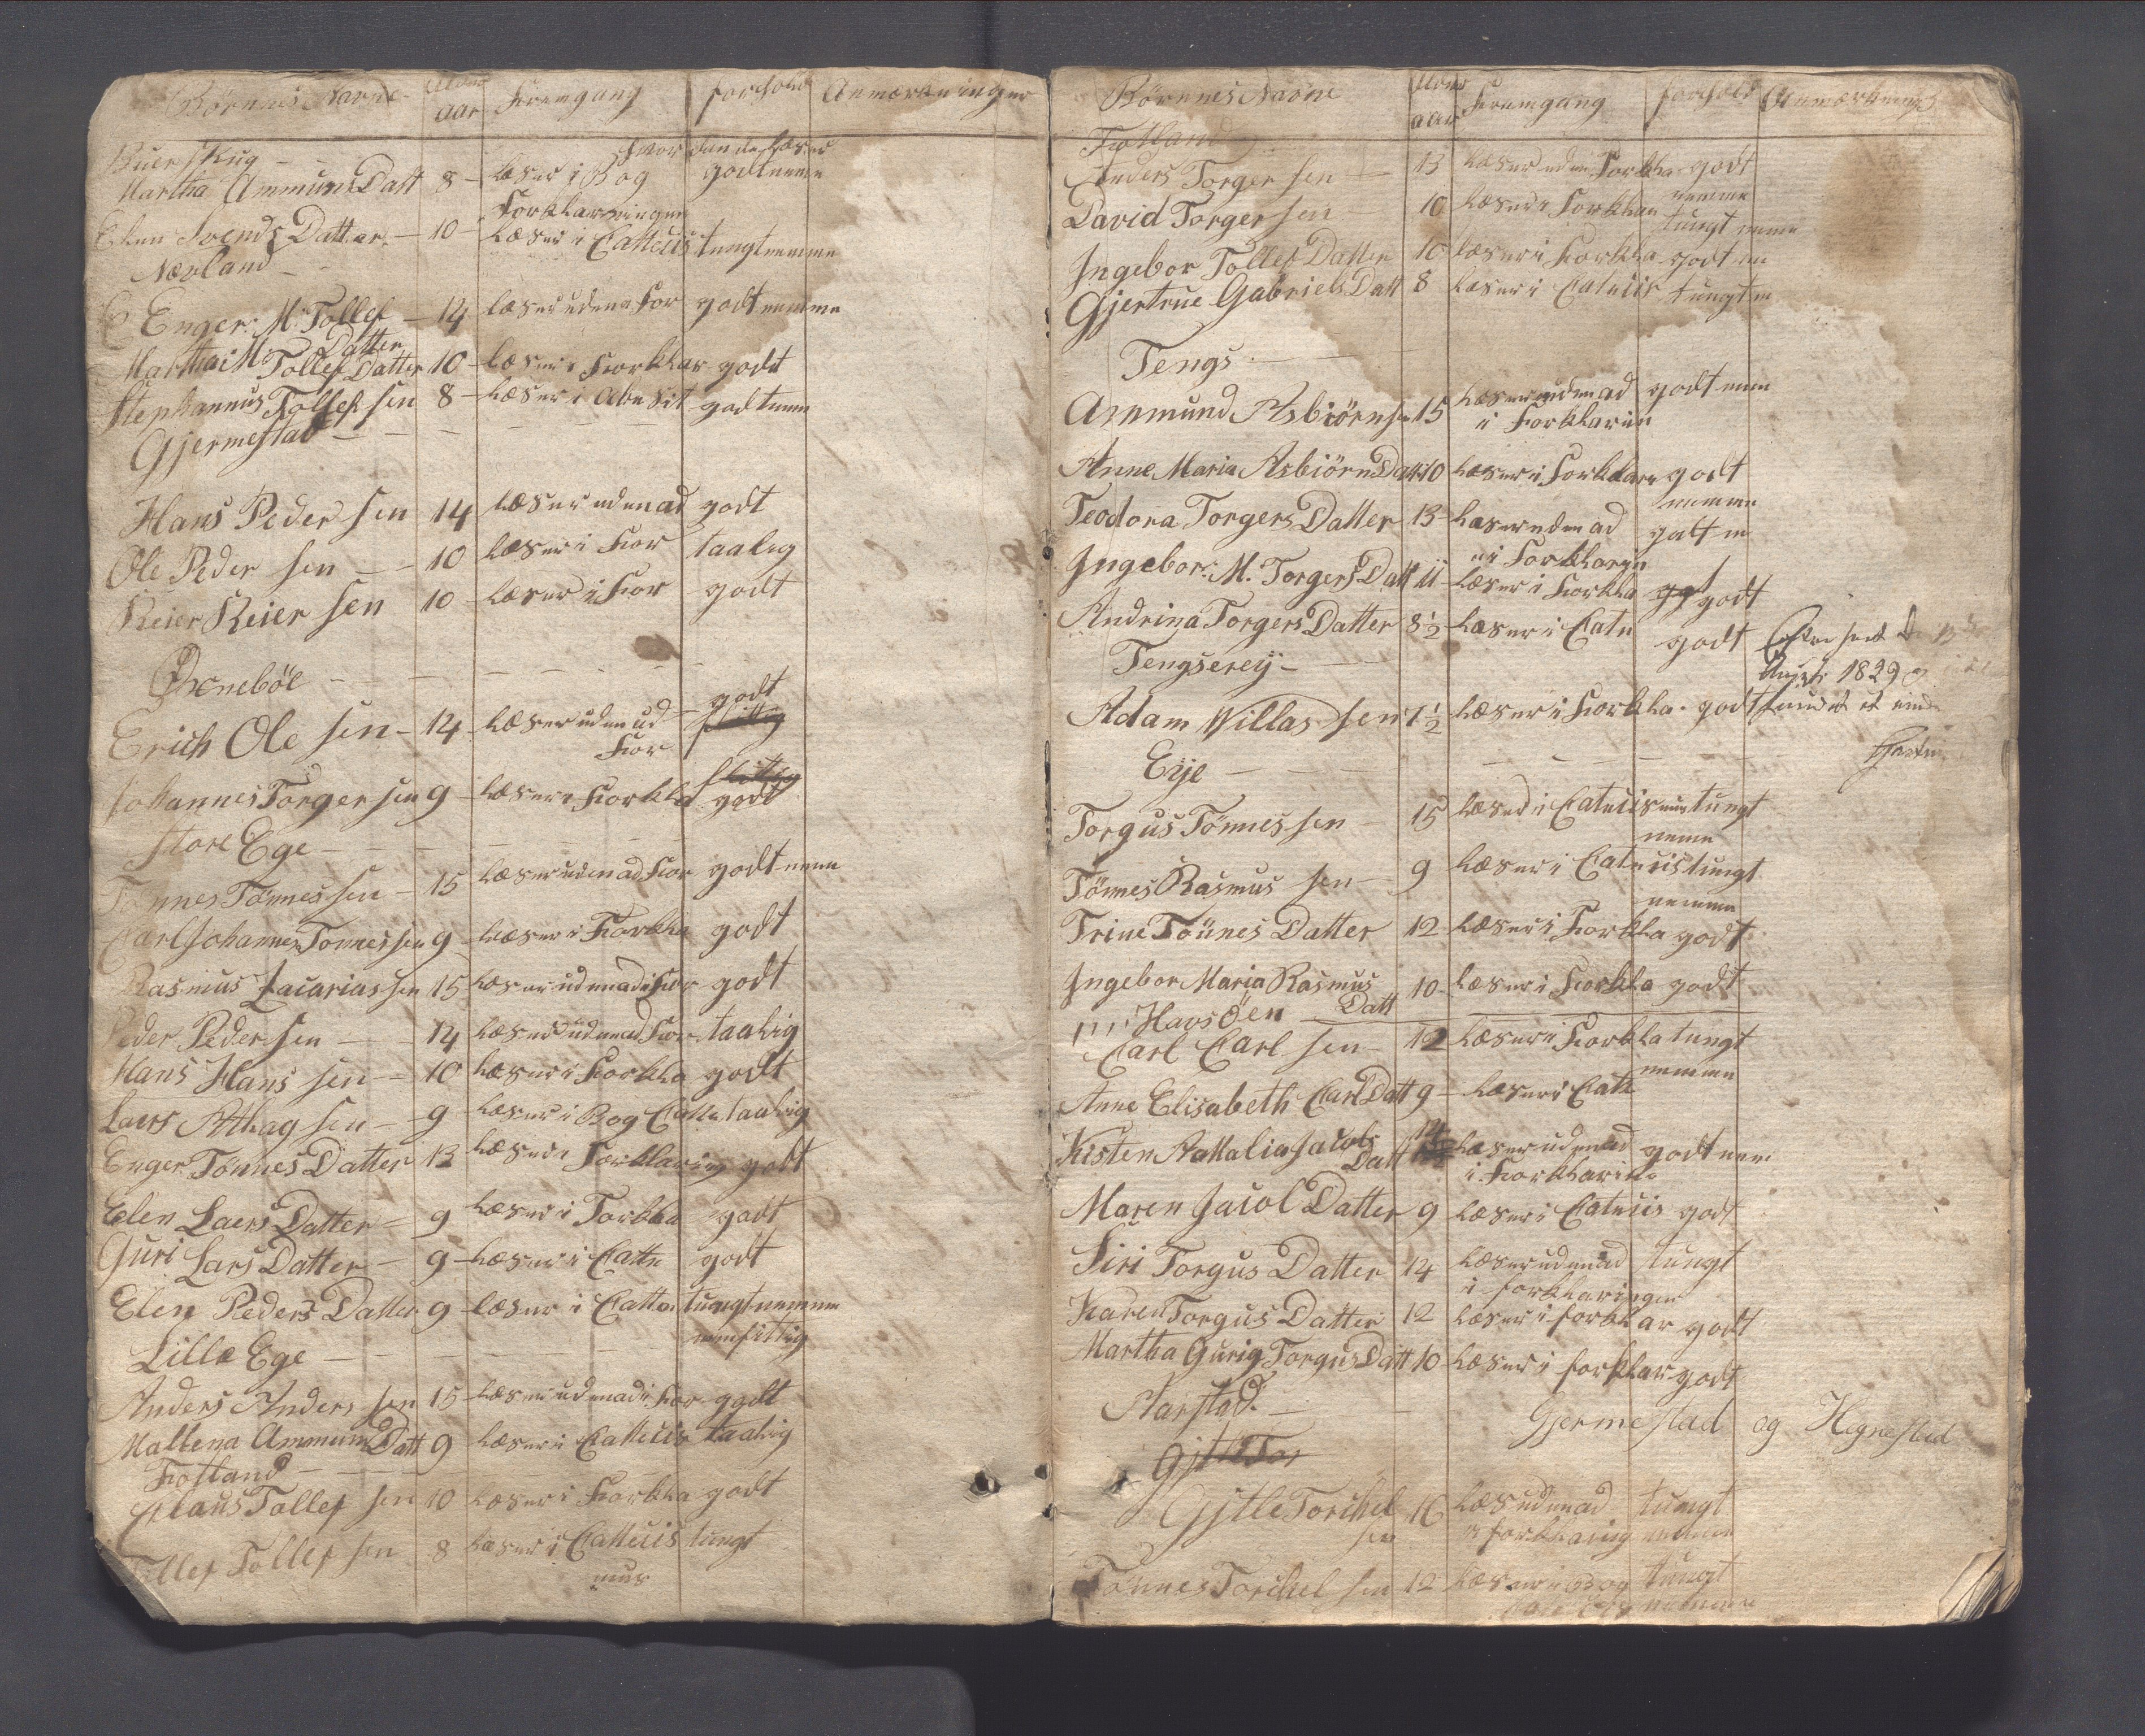 Børnnes Navne Alder aar Fremgang forhold Anmærkninger
Buerskug
hvor dan de Læser
Martha AmmunsDatt 8 Læser i Bog godt nemme
Forklarningen
Elen Svends Datter 10 Læser i Cattecis tungt nemme
Nævland
Enger: M: Tollef Datter 14 læser uden a For godt nemme
Martha M: Tollef Datter 10 læser i Forklar godt
Stephannus Tollef sen 8 Læser i Abesit godt nem
Gjermestad
Hans Peder sen 14 læser uden ad godt
Ole Peder sen 10 læser i For taalig
Reier Reier sen 10 læser i For godt
Øxnebøe
Erich Ole sen 14 læser uden ud For godt
Johannes Torger sen 9 læser i Forkla godt
Store Ege
Tønnes Tønnes sen 15 læser uden ad For godt nem
Carl Johannes Tønnes sen 9 læser i Forkla godt
Rasmus Zacarias sen 15 læser uden ad i For godt
Peder Peder sen 14 læser uden ad For taalig
Hans Hans sen 10 læser i Forkla godt
Laers Athag sen 9 læser i Bog Catte taalig
Enger Tønnes Datter 13 læser i Forklaring godt
Elen Laers Datter 9 læser i Forkla godt
Guri Lars Datter 9 læser i Catte godt
Elen Peders Datter 9 læser i Catte tungt nemme
Lille Ege
Anders Anders sen 15 læser uden ad i For godt
Mallena Ammuns Datt 9 læser i Cattecis taalig
Fotland
Claus Tollef sen 10 læser i Forkla godt
Tollef Tollef sen 8 læser i Cattecis tungt
Børnnes Navne Alder aar Fremgang forhold Anmærkning
Fotland
Anders Torger sen 13 læser uden Forkla godt nemme
David Torger sen 10 læser i Forklar tungt nemme
Ingebor Tollef Datter 10 læser i Forkla godt
Gjertrue Gabriels Datt 8 læser i Catecis tungt
Tengs
Ammund Asbiørnsen 15 læser uden ad i Forklarin godt nem
Anne Maria Asbiørns Datt 10 læser i Forklar godt nemme
Teodora Torgers Datter 13 læser uden ad i Forklarin godt
Ingebor: M. Torgers Datt 11 læser i Forkla godt
Andrina Torgers Datter 8½ læser i Cate godt
Tengserey
August 1829
Adam Willas sen 7½ læser i Forkla godt
Eye
Torgus Tønnes sen 15 læser i Catecis tungt nemme
Tønnes Rasmus sen 9 læser i Catecis tungt nemme
Trine Tønnes Datter 12 læser i Forkla godt
Ingebor Maria Rasmus Datt 10 læser i Forkla godt
Havsøen
Carl Carl sen 12 læser i Forkla tungt nemme
Anne Elisabeth Carl Datt 9 læser i Cate
Kisten Nattalia Jacobs Datt 14 læser uden ad i Forklarin godt nem
Maren Jacol Datter 9 læser i Catecis godt
Siri Torgus Datter 14 læser uden ad i forklaringen tungt
Karen Torgus Datter 12 læser i forklar godt
Martha Gurig Torgus Datt 10 læser i forklar godt
Aarstad
Gjermestad og Hegnestad
Gitle Torchel sen 16 Læs uden ad i forklaring tungt nemme
Tønnes Torchel sen 12 Læser i Bog tungt nemme